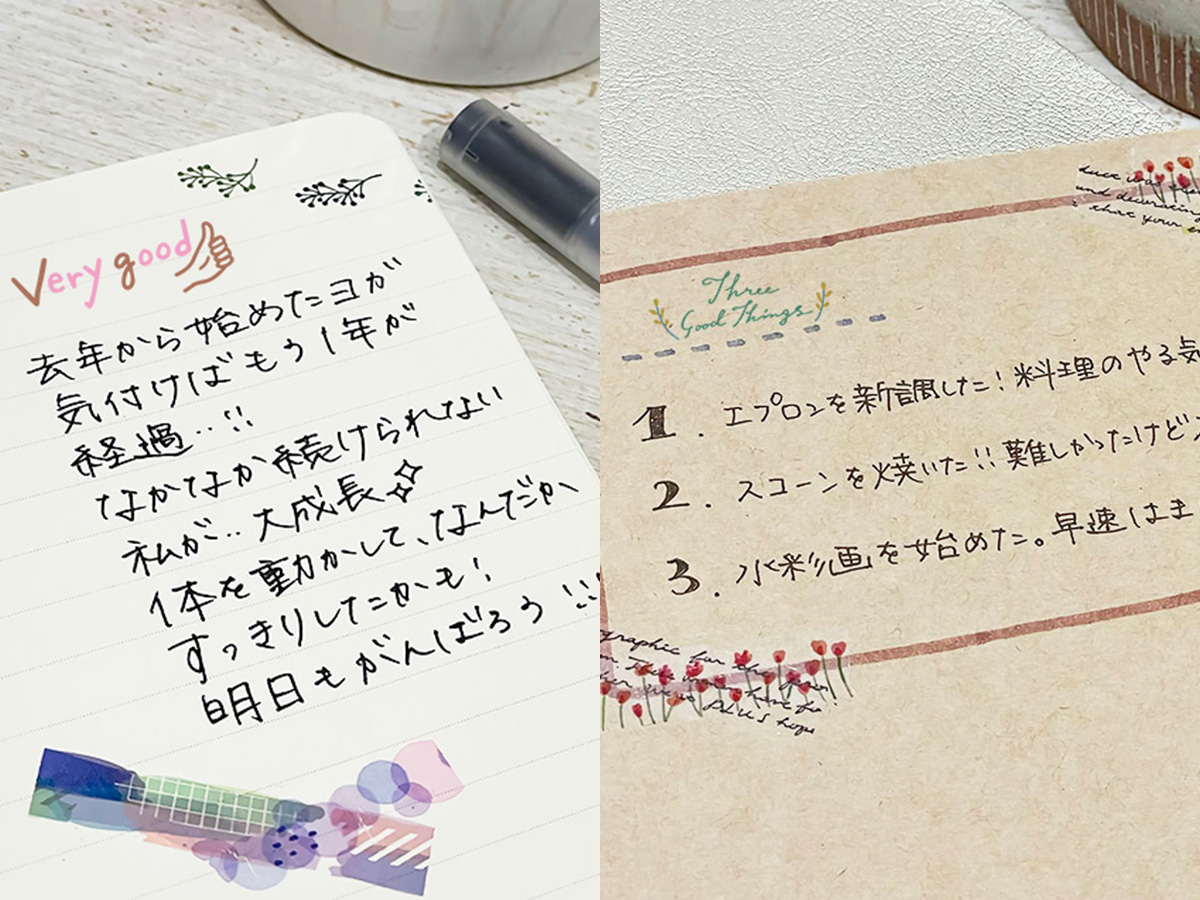 Very good
去年から始めたヨガ
気付けばもう1年が
経過..!!
なかなか続けられない
私が..大成長
体を動かして、なんだか
すっきりしたかも!
明日もがんばろう!!
Three
Good Things
1. エプロンを新調した!料理のやる気
2. スコーンを焼いた!!難しかったけど
3. 水彩画を始めた。早速はま
and decorating
that your
graphic for the
PLUS hope